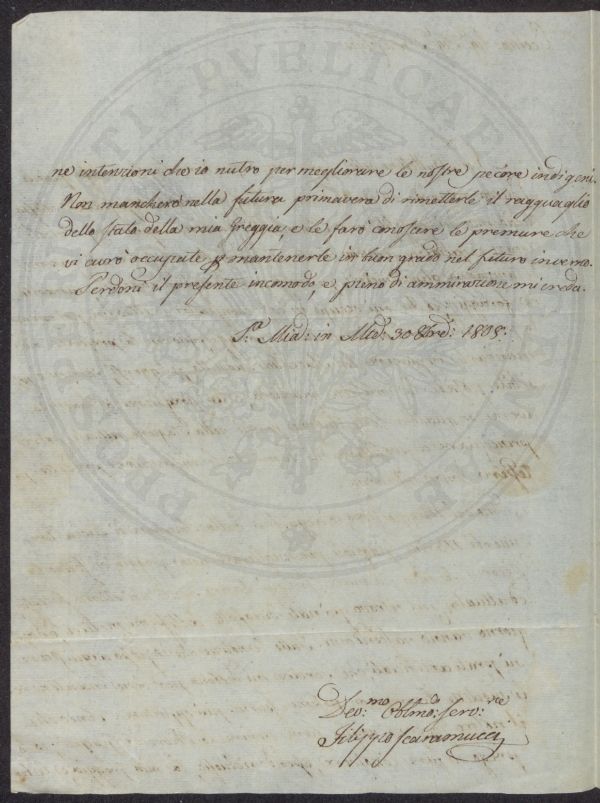 PROSPERITATI PUBLICAE
ne intenzioni che io nutro per megliorare le nostre pecore indigeni.
Non mancherò nella futura primavera di rimetterle il ragguaglio
dello stato della mia Greggia, e le farò conoscere le premure che
vi avrò occupate p mantenerle in buon grado nel futuro inverno.
Perdoni il presente incomodo, e pieno di ammirazione mi creda.
in 30 1808.
Dev.mo Obbmo: Serv.re
Filippo Scaramucci